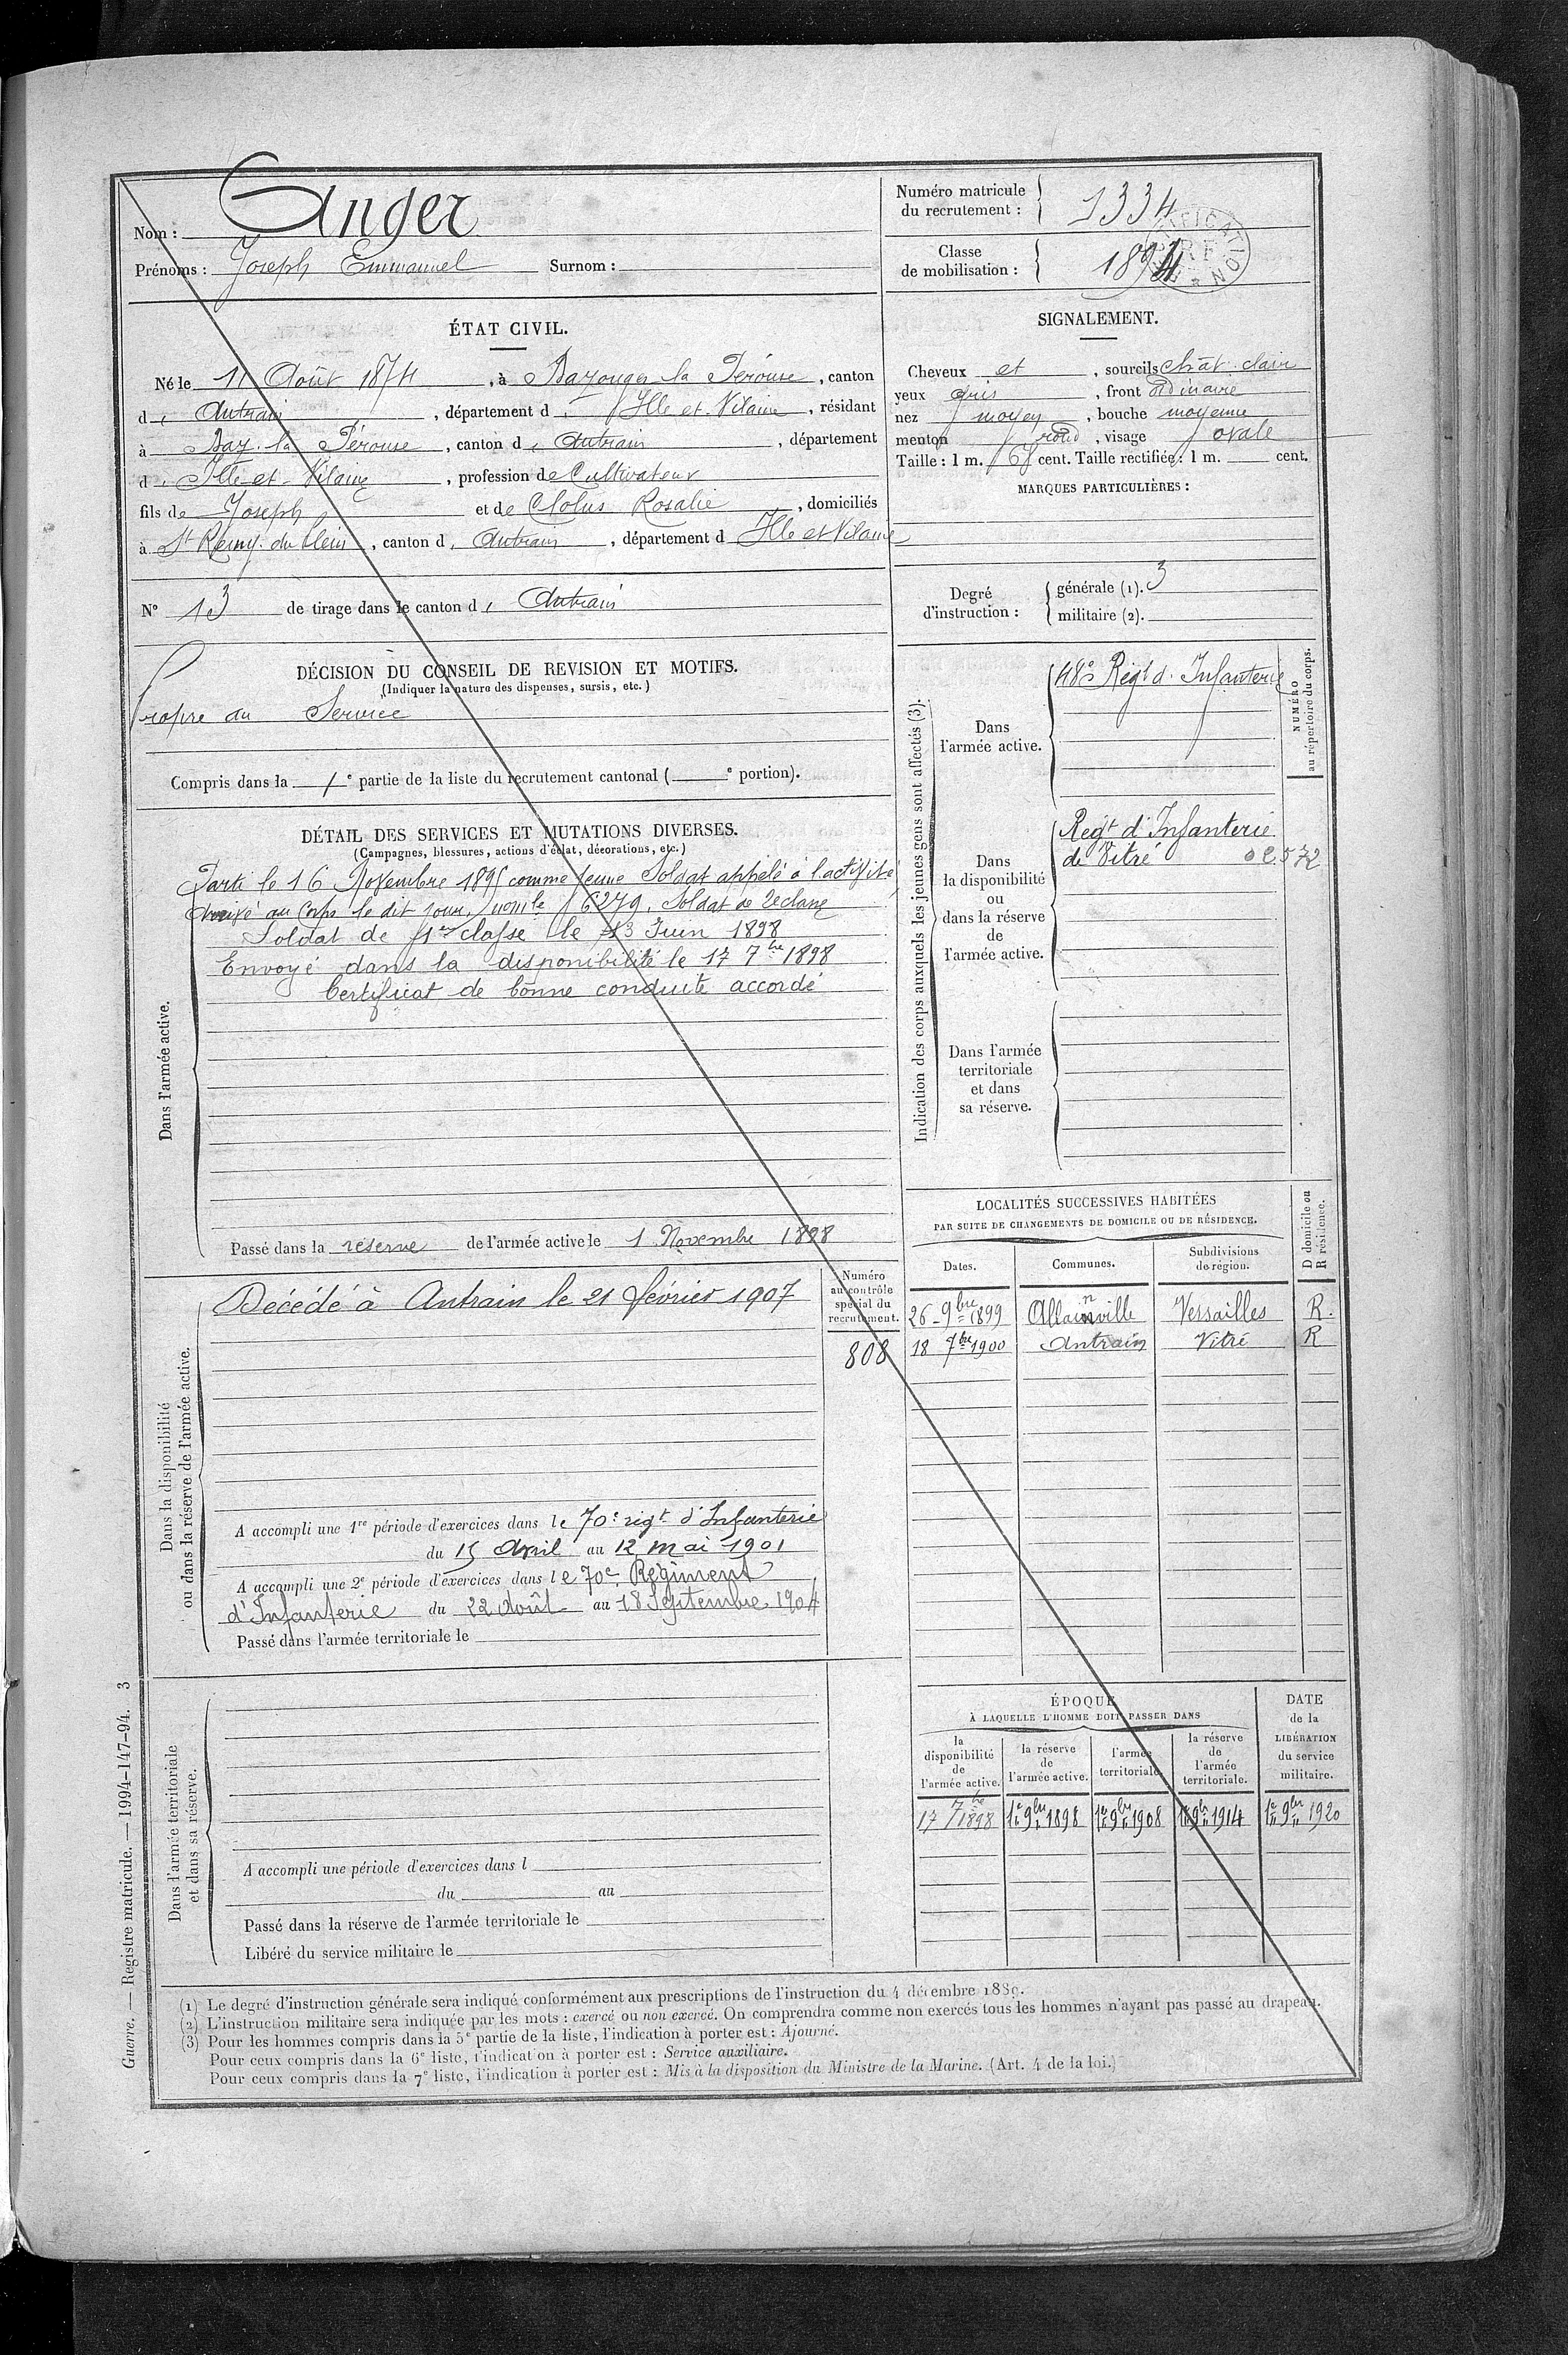 Nom : Anger
Prénoms : Joseph Emmanuel Surnom :
Numéro matricule
du recrutement : 1334
Classe
de mobilisation : 1894
ÉTAT CIVIL.
Né le 11 Août 1874, à Bazouges la Pérouse, canton
d, Antrain, département d, Ille et Vilaine, résidant
à Baz. la Pérouse, canton d, Antrain, département
d, Ille et Vilaine, profession de Cultivateur
fils de Joseph et de Clolus Rosalie, domiciliés
à St Remy du Plein, canton d, Antrain, département d Ille et Vilaine
N° 13 de tirage dans le canton d, Antrain
SIGNALEMENT.
Cheveux et, sourcils chât. clair
yeux gris, front ordinaire
nez moyen, bouche moyenne
menton rond, visage ovale
Taille : 1 m. cent. Taille rectifiée : 1 m. cent.
MARQUES PARTICULIÈRES :
Degré
d'instruction :
générale (1). 3
militaire (2).
DÉCISION DU CONSEIL DE REVISION ET MOTIFS.
(Indiquer la nature des dispenses, sursis, etc.)
Propre au Service
Compris dans la 1e partie de la liste du recrutement cantonal ( e portion).
DÉTAIL DES SERVICES ET MUTATIONS DIVERSES.
(Campagnes, blessures, actions d'éclat, décorations, etc.)
Dans l'armée active.
Parti le 16 Novembre 1895 comme jeune Soldat appelé à l'activité
Arrivé au Corps le dit jour, 6279. Soldat de 2e classe
Soldat de 1re classe le 13 Juin 1898
Envoyé dans la disponibilité le 17 7bre 1898
Certificat de bonne conduite accordé
Passé dans la réserve de l'armée active le 1 Novembre 1898
Indication des corps auxquels les jeunes gens sont affectés (3).
NUMÉRO
au répertoire du corps.
Dans
l'armée active.
48e Régt d. Infanterie
Dans
la disponibilité
ou
dans la réserve
de
l'armée active.
Regt d'Infanterie
de Vitré 02572
Dans l'armée
territoriale
et dans
sa réserve.
LOCALITÉS SUCCESSIVES HABITÉES
PAR SUITE DE CHANGEMENTS DE DOMICILE OU DE RÉSIDENCE.
D domicile ou
R résidence.
Dates. Communes. Subdivisions
de région.
26 9bre 1899 Allainville Versailles R.
18 7bre 1900 Antrain Vitré R
Dans la disponibilité
ou dans la réserve de l'armée active.
Décédé à Antrain le 21 février 1907
Numéro
au contrôle
spécial du
recrutement.
808
A accompli une 1re période d'exercices dans le 70e régt d'Infanterie
du 15 Avril au 12 mai 1901
A accompli une 2e période d'exercices dans le 70e Régiment
d'Infanterie du 22 Août au 18 Septembre 1904
Passé dans l'armée territoriale le
Dans l'armée territoriale
et dans sa réserve.
A accompli une période d'exercices dans l
du au
Passé dans la réserve de l'armée territoriale le
Libéré du service militaire le
ÉPOQUE
À LAQUELLE L'HOMME DOIT PASSER DANS
la
disponibilité
de
l'armée active.
la réserve
de
l'armée active.
l'armée
territoriale.
la réserve
de
l'armée
territoriale.
DATE
de la
LIBÉRATION
du service
militaire.
17 7bre 1898 1er 9bre 1898 1er 9bre 1908 1er 9bre 1914 1er 9bre 1920
(1) Le degré d'instruction générale sera indiqué conformément aux prescriptions de l'instruction du 4 décembre 1889.
(2) L'instruction militaire sera indiquée par les mots : exercé ou non exercé. On comprendra comme non exercés tous les hommes n'ayant pas passé au drapeau.
(3) Pour les hommes compris dans la 5e partie de la liste, l'indication à porter est : Ajourné.
Pour ceux compris dans la 6e liste, l'indication à porter est : Service auxiliaire.
Pour ceux compris dans la 7e liste, l'indication à porter est : Mis à la disposition du Ministre de la Marine. (Art. 4 de la loi.)
Guerre. — Registre matricule. — 1994-147-94. 3